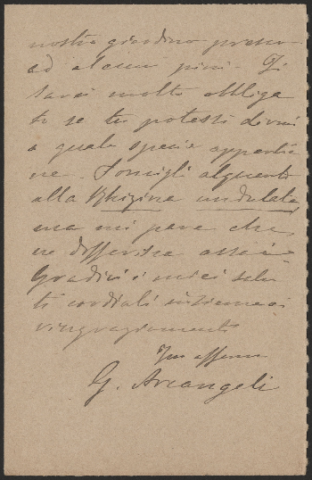 nostro giardino presso
ad alcuni pini. Ti
sarei molto obbliga
to se tu potessi dirmi
a quale specie apparte
ne. Somigli alquanto
alla Rhizina undulata
ma mi pare che
ne differisca assai
Gradisci i miei salu
ti cordiali insieme ai
ringraziamenti
Tuo affmo
G. Arcangeli